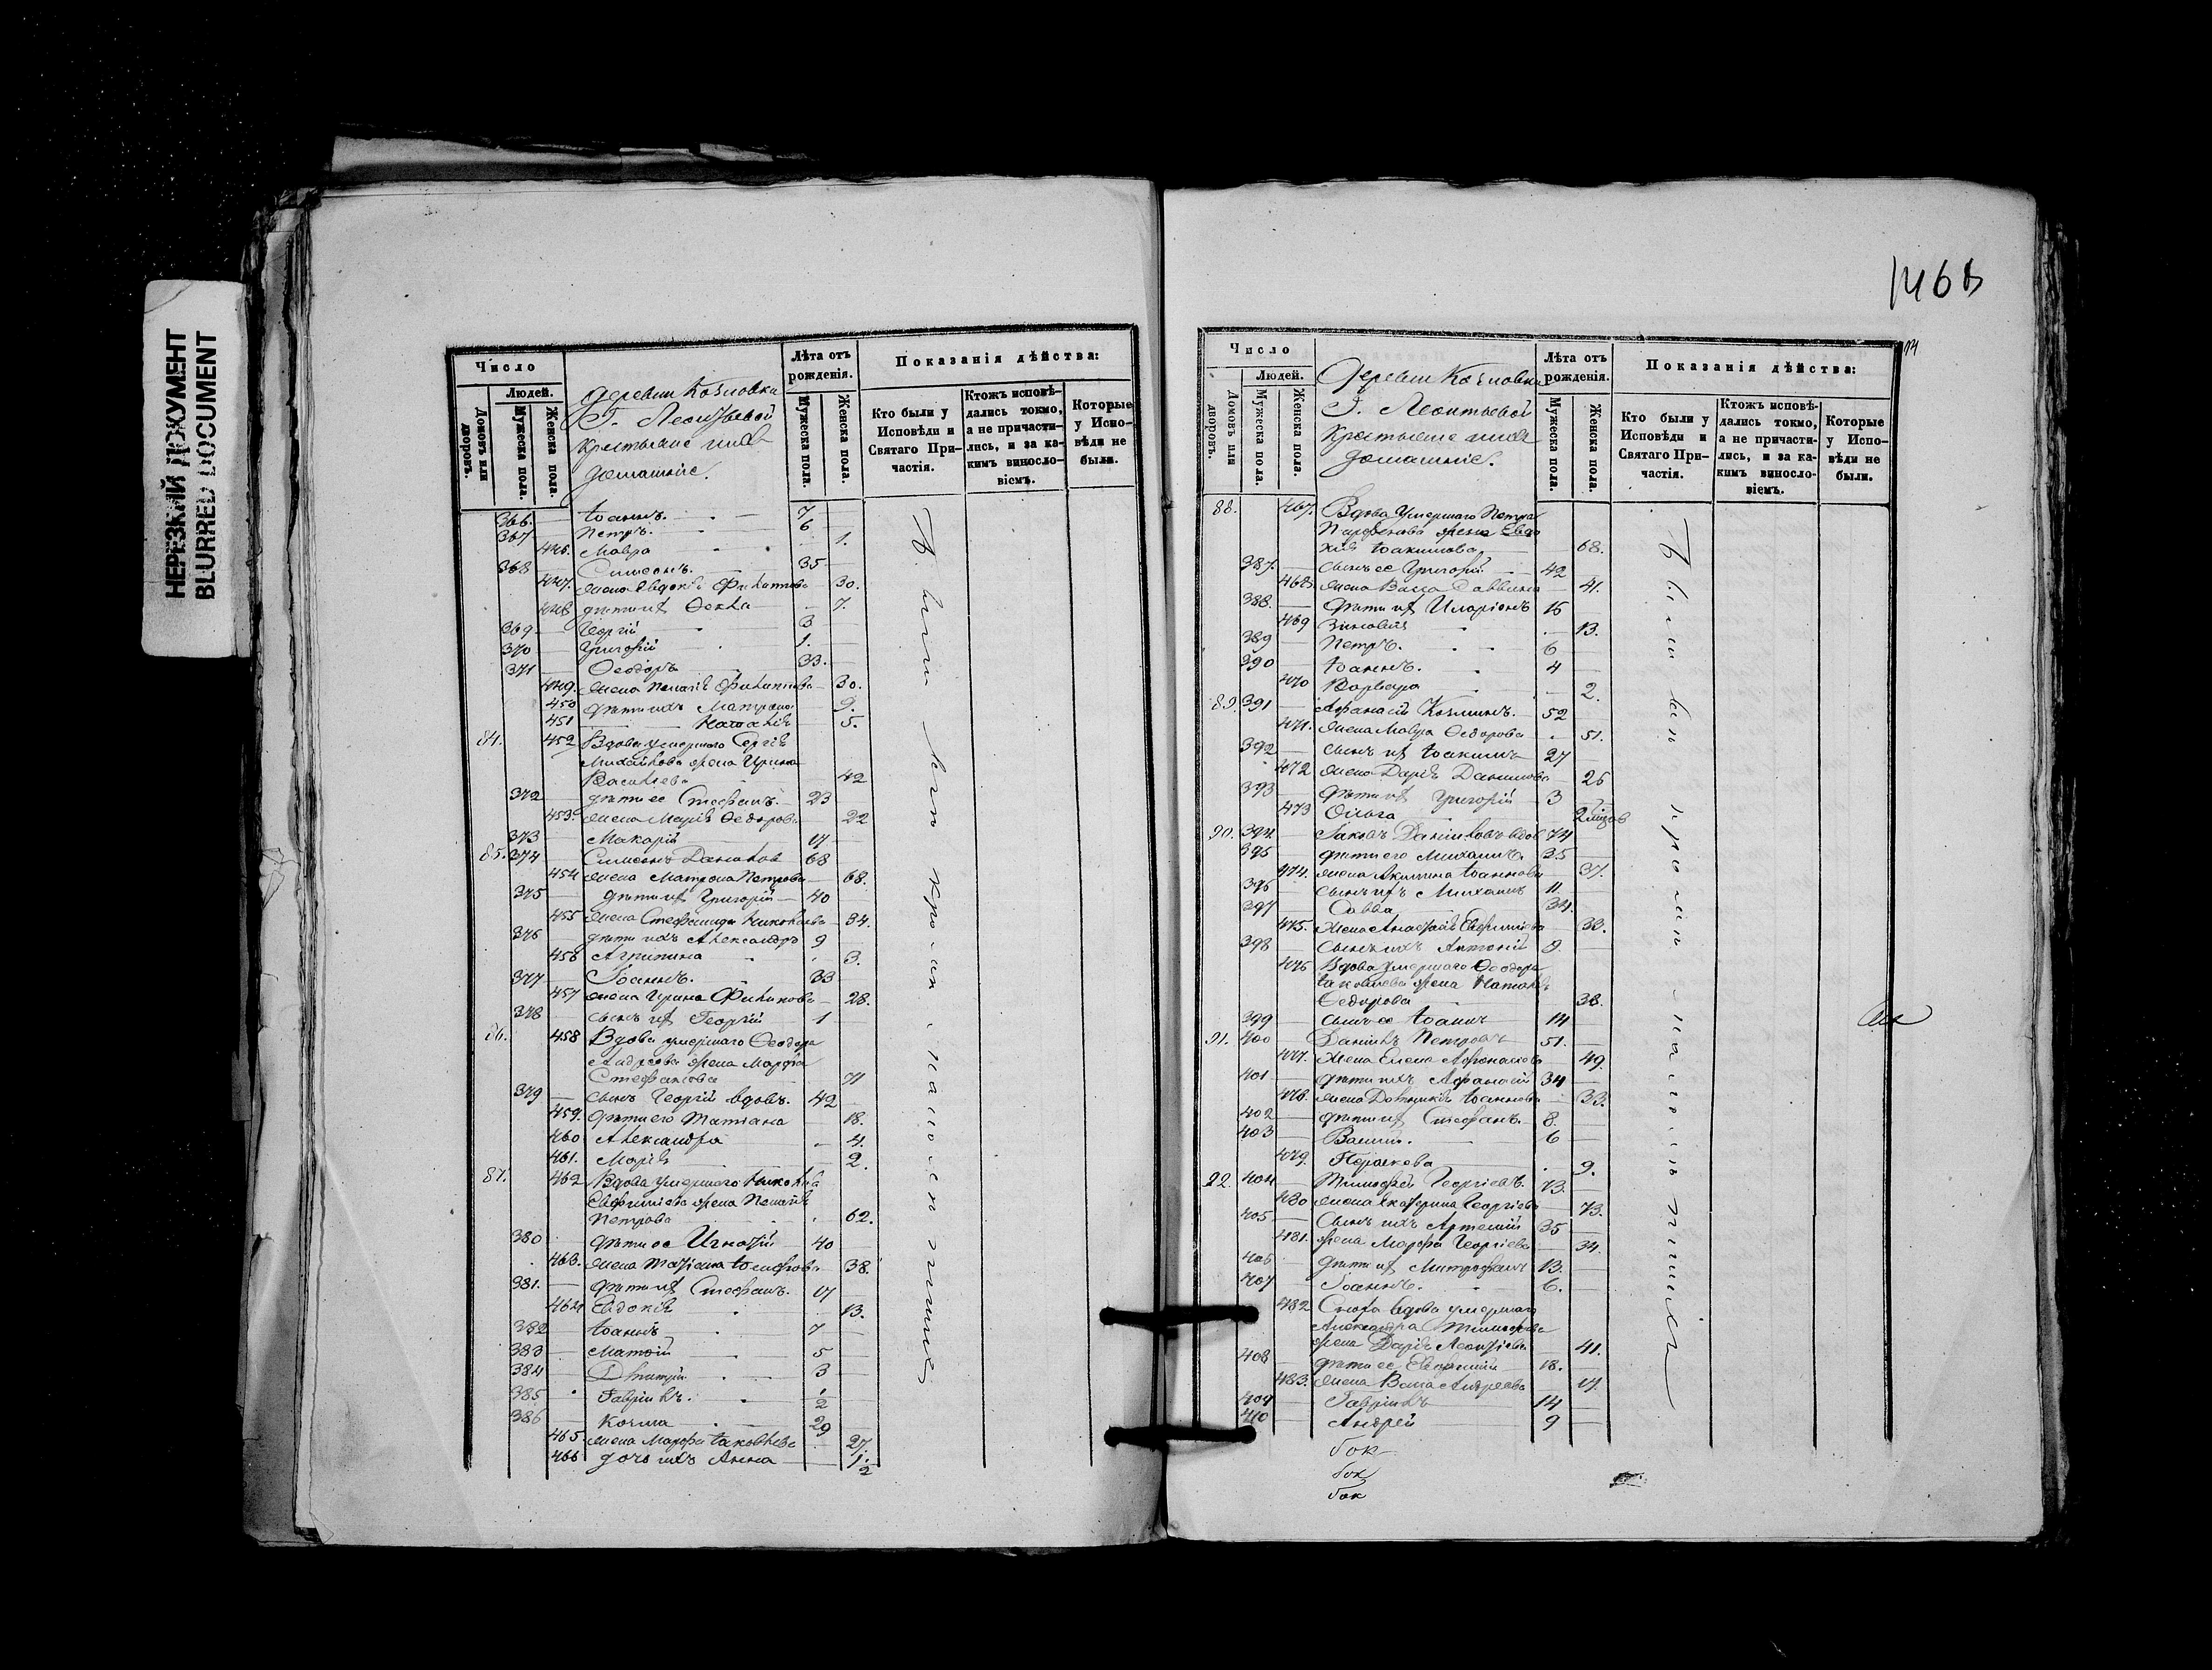 НЕРЕЗКИЙ ДОКУМЕНТ
BLURRED DOCUMENT
Число
Людей.
Домовъ или дворовъ.
Мужеска пола.
Женска пола.
Деревни Козловки
Г. Леонтьевой
крестьяне и ихъ
домашніе.
Лѣта отъ рожденія.
Мужеска пола.
Женска пола.
Показанія дѣйства:
Кто были у Исповѣди и Святаго Причастія.
Ктожъ исповѣдались токмо, а не причастились, и за какимъ винословіемъ.
Которые у Исповѣди не были.
366. Іоаннъ. 7
367 Петръ. 6
446. Мавра 1.
368 Симеонъ. 35
447. жена Евдокія Филиппова 30.
448 дѣти ихъ Ѳекла 7.
369 Георгій 3
370 Григорій 1.
371 Ѳеодоръ 33.
449. жена Пелагія Филиппова 30.
450 дѣти ихъ Матрона 9.
451 Наталія 5.
84. 452 Вдова умершаго Сергія
Михайлова жена Ирина
Васильева 42
372 дѣти ее Стефанъ. 23
453. жена Марія Ѳедорова 22
373 Макарій 17
85. 374 Симеонъ Данилов 68
454 жена Матрона Петрова 68.
375 дѣти ихъ Григорій 40
455 жена Стефанида Николаева 34.
376 дѣти ихъ Александръ 9
456 Агрипина 3.
377 Іоаннъ. 33
457 жена Ирина Филипова 28.
378 сынъ ихъ Георгій 1
86. 458 Вдова умершаго Ѳеодора
Андреева жена Марфа
Стефанова 71
379 сынъ Георгій вдовъ. 42
459. дѣти его Татіана 18.
460 Александра 4.
461. Марія 2.
87. 462 Вдова умершаго Николая
Евфиміева жена Пелагія
Петрова 62.
380 дѣти ее Игнатій 40
463. жена Татіана Іосифова 38.
381. дѣти ихъ Стефанъ. 17
464 Евдокія 13.
382 Іоаннъ 7
383 Матѳій 5
384 Дмитрій 3
385 Гавріилъ. 1/2
386 Козма 29
465. жена Марфа Іаковлева 27.
466 дочь ихъ Анна 1/2
1468
Число
Людей.
Домовъ или дворовъ.
Мужеска пола.
Женска пола.
Деревни Козловки
Г. Леонтьевой
крестьяне и ихъ
домашніе.
Лѣта отъ рожденія.
Мужеска пола.
Женска пола.
Показанія дѣйства:
Кто были у Исповѣди и Святаго Причастія.
Ктожъ исповѣдались токмо, а не причастились, и за какимъ винословіемъ.
Которые у Исповѣди не были.
88. 467. Вдова умершаго Петра
Парфенова жена Евдо
кія Іоакимова 68.
387. сынъ ее Григорій 42
468. жена Васса Саввина 41.
388. дѣти ихъ Иларіонъ 16
469 Зиновія 13.
389 Петръ. 6
390 Іоаннъ. 4
470 Варвара 2.
89. 391 Афанасій Козминъ. 52
471. жена Мавра Ѳедорова 51.
392 сынъ ихъ Іоакимъ 27
472 жена Дарія Данилова 26
393 дѣти ихъ Григорій 3
473 Ольга
90. 394 Іаковъ Даніиловъ вдов 74
395 дѣти его Михаилъ. 35
474. жена Акилина Іоаннова 37.
396 сынъ ихъ Михаилъ 11
397 Савва 34.
475. Жена Анастасія Евфиміева 33.
398 сынъ ихъ Антоній 9.
476 Вдова умершаго Ѳеодора
Іаковлева жена Наталія
Ѳедорова 38.
399 сынъ ее Іоаннъ 14
91. 400 Даніилъ Петровъ 51.
477. Жена Елена Афанасіева 49.
401 дѣти ихъ Афанасій 34
478. жена Домникія Іоаннова 33.
402 дѣти ихъ Стефанъ. 8.
403 Василій. 6
479. Параскева 9.
92. 404 Тимофей Георгіевъ. 73.
480 жена Екатерина Георгіева 73.
405 Сынъ ихъ Артемій 35
481. жена Марфа Георгіева 34.
406 дѣти ихъ Митрофанъ 13.
407 Іоаннъ. 6.
482 Сноха вдова умершаго
Александра Тимофеева
жена Дарія Леонтіева 41.
408 дѣти ее Евфимій 18.
483. жена Васса Андреева 17.
409 Гавріилъ 14
410 Андрей 9